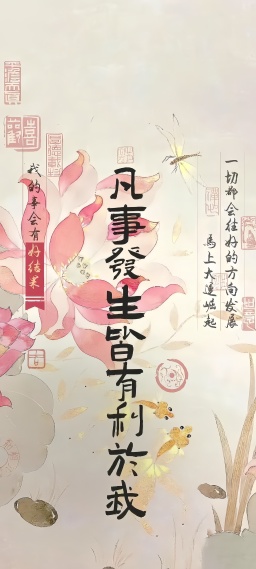 一切都会往好的方向发展
馬上大運崛起
凡事發生皆有利於我
我的事会有好结果